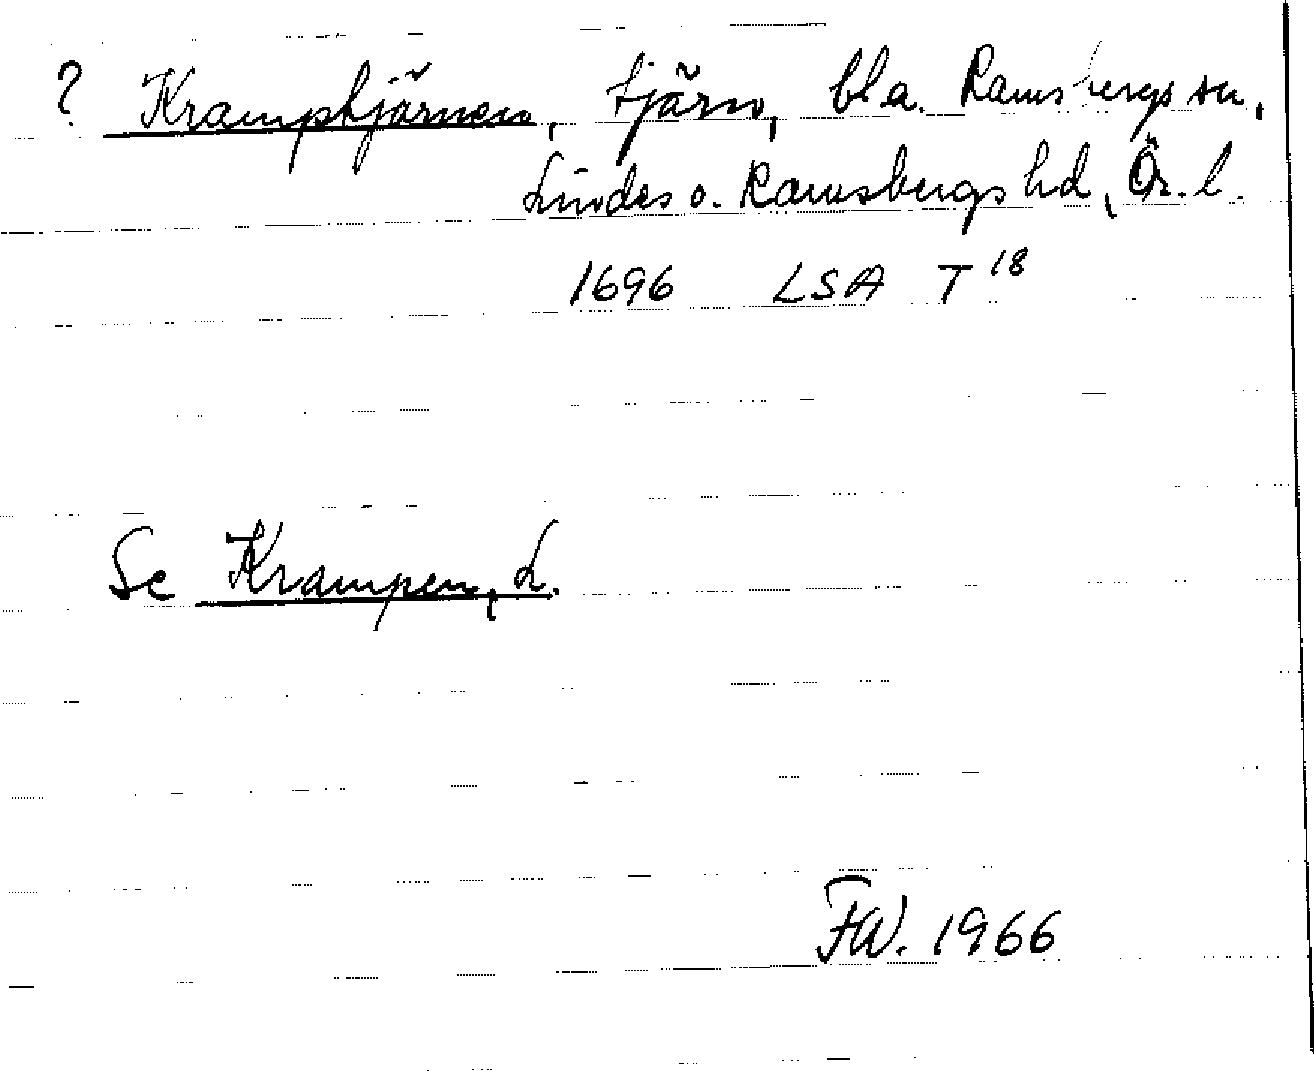 ? Kramptjärnen, tjärn, bl a. Ramsbergs sn,
Lindes o. Ramsbergs hd, Ör. l.
1696 LSA T 18
Se Krampen, L.
FW. 1966